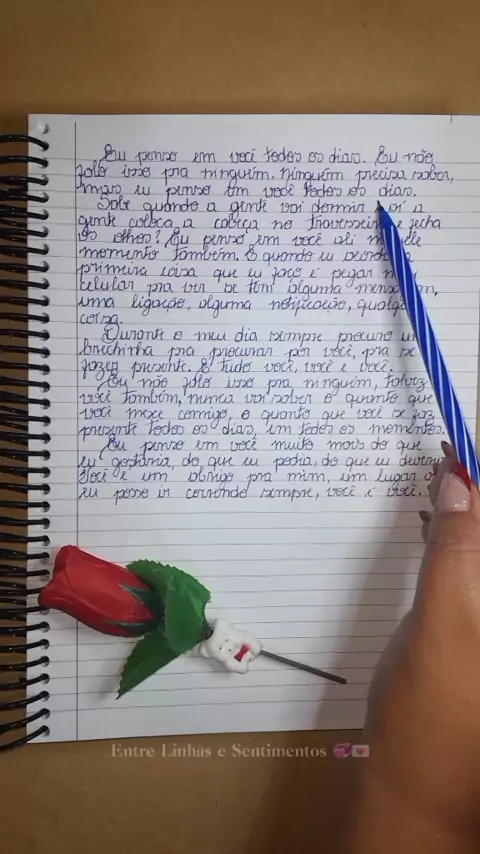 Eu penso em você todos os dias. Eu não
falo isso pra ninguém. Ninguém precisa saber,
mas eu penso em você todos os dias.
Sabe quando a gente vai dormir aí a
gente coloca a cabeça no travesseiro e fecha
os olhos? Eu penso em você ali
momento também. E quando eu
primeira coisa que eu faço é pegar
celular pra ver se tem alguma
uma ligação, alguma notificação,
coisa.
Durante o meu dia sempre procuro
brechinha pra procurar por você, pra se
fazer presente. É tudo você, você e você.
Eu não falo isso pra ninguém, talvez
você também, nunca vai saber o quanto que
você mexe comigo, o quanto que você se faz
presente todos os dias, em todos os momentos.
Eu penso em você muito mais do que
eu gostaria, do que eu podia, do que eu
Você é um abrigo pra mim, um lugar
eu posso ir correndo sempre, você é você.
Entre Linhas e Sentimentos 💞💌